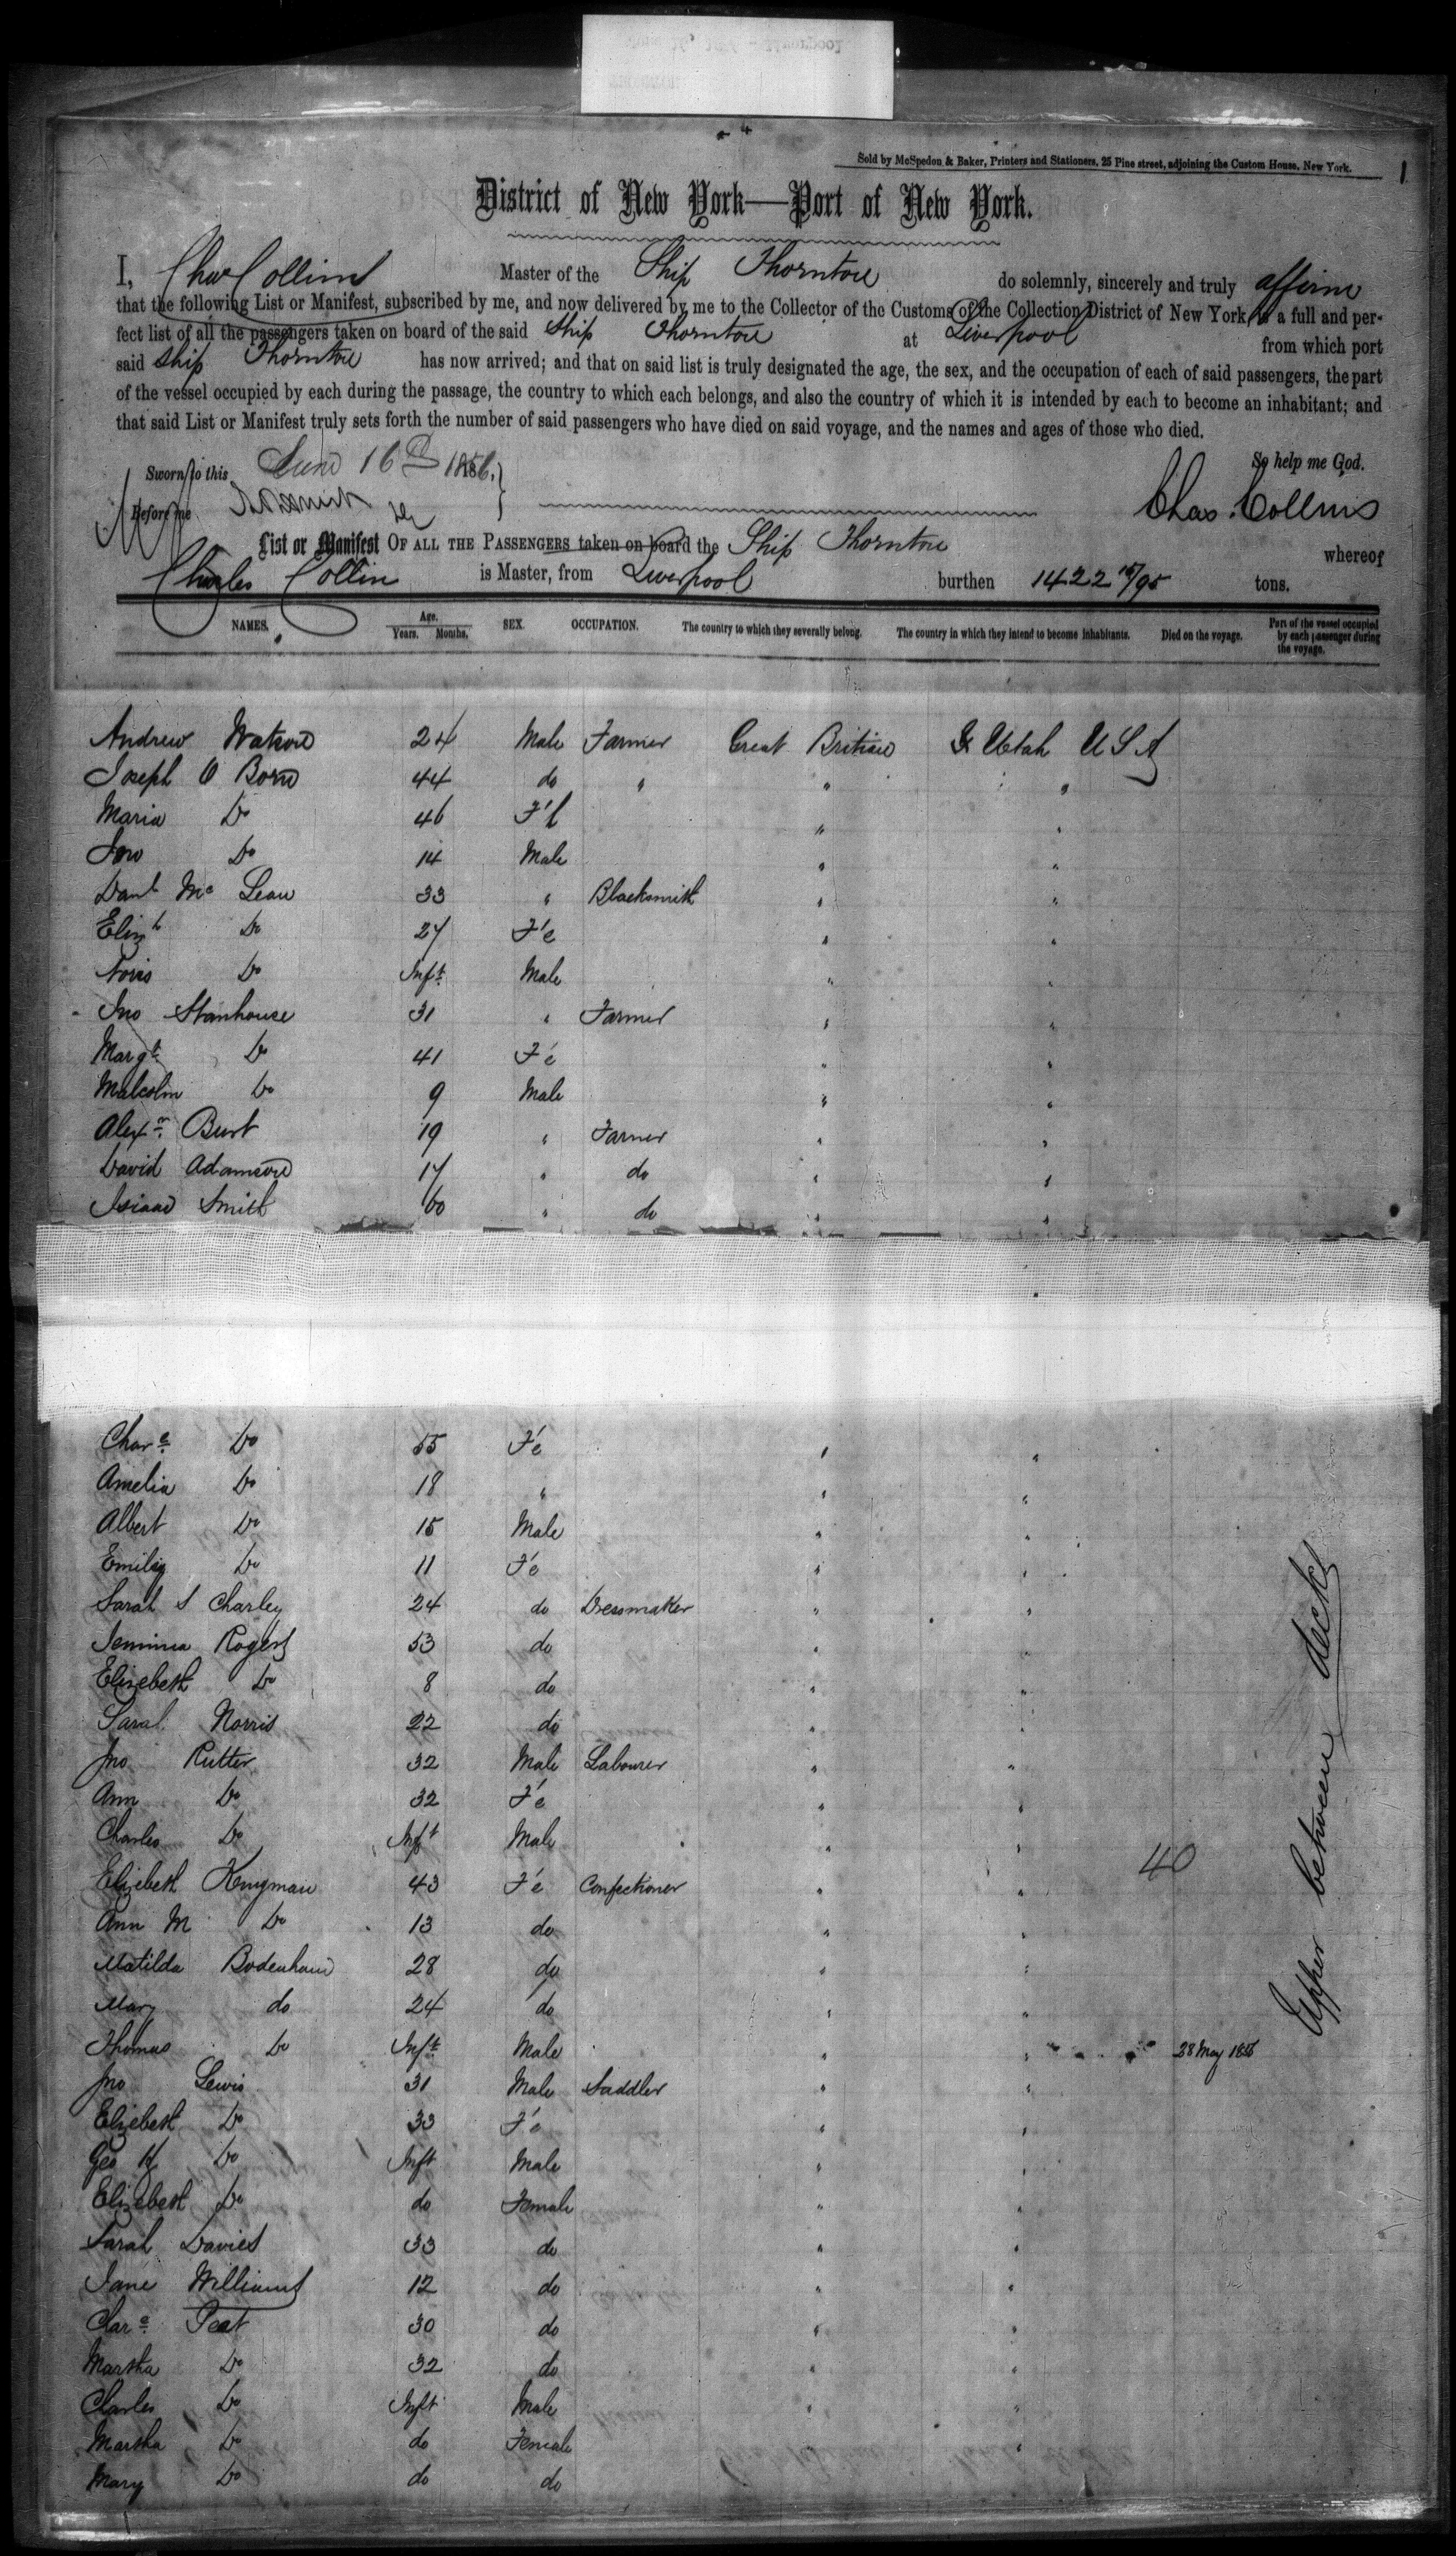 Sold by McSpedon & Baker, Printers and Stationers, 25 Pine street, adjoining the Custom House, New York.
1
District of New York—Port of New York.
I, Chas Collins Master of the Ship Thornton do solemnly, sincerely and truly affirm
that the following List or Manifest, subscribed by me, and now delivered by me to the Collector of the Customs of the Collection District of New York, is a full and per-
fect list of all the passengers taken on board of the said Ship Thornton at Liverpool from which port
said Ship Thornton has now arrived; and that on said list is truly designated the age, the sex, and the occupation of each of said passengers, the part
of the vessel occupied by each during the passage, the country to which each belongs, and also the country of which it is intended by each to become an inhabitant; and
that said List or Manifest truly sets forth the number of said passengers who have died on said voyage, and the names and ages of those who died.
Sworn to this June 16th 1856, So help me God.
Before me Chas. Collins
List or Manifest OF ALL THE PASSENGERS taken on board the Ship Thornton whereof
Charles Collin is Master, from Liverpool burthen 1422 15/95 tons.
NAMES. Age. Years. Months. SEX. OCCUPATION. The country to which they severally belong. The country in which they intend to become inhabitants. Died on the voyage. Part of the vessel occupied by each passenger during the voyage.
Andrew Watson 24 Male Farmer Great Britian Utah U S A
Joseph O Born 44 do " " "
Maria Do 46 F'l " "
Jno Do 14 Male " "
Danl Mc Lean 33 " Blacksmith " "
Elizth Do 27 F'e " "
Do Inft Male " "
Jno Stanhouse 31 " Farmer " "
Margt Do 41 F'e " "
Malcolm Do 9 Male " "
Alexr Burt 19 " Farmer " "
David Adamson 17 " do " "
Isiaac Smith 60 " do " "
Chare Do 55 F'e " "
Amelia Do 18 " " "
Albert Do 15 Male " "
Emily Do 11 F'e " "
Sarah S Charley 24 do Dressmaker " "
Jemima Rogers 53 do " "
Elizebeth Do 8 do " "
Sarah Norris 22 do " "
Jno Rutter 32 Male Labourer " "
Ann Do 32 F'e " "
Charles Do Inft Male " "
40
Elizebeth Kingman 43 F'e Confectioner " "
Ann M Do 13 do " "
Matilda Bodenham 28 do " "
Mary do 24 do " "
Thomas Do Inft Male " " 28 May 1856
Jno Lewis 31 Male Saddler " "
Elizebeth Do 33 F'e " "
Geo H Do Inft Male " "
Elizebeth Do do Female " "
Sarah Davies 33 do " "
Jane Williams 12 do " "
Chare Peat 30 do " "
Martha Do 32 do " "
Charles Do Inft Male " "
Martha Do do Female " "
Mary Do do do
Upper between decks